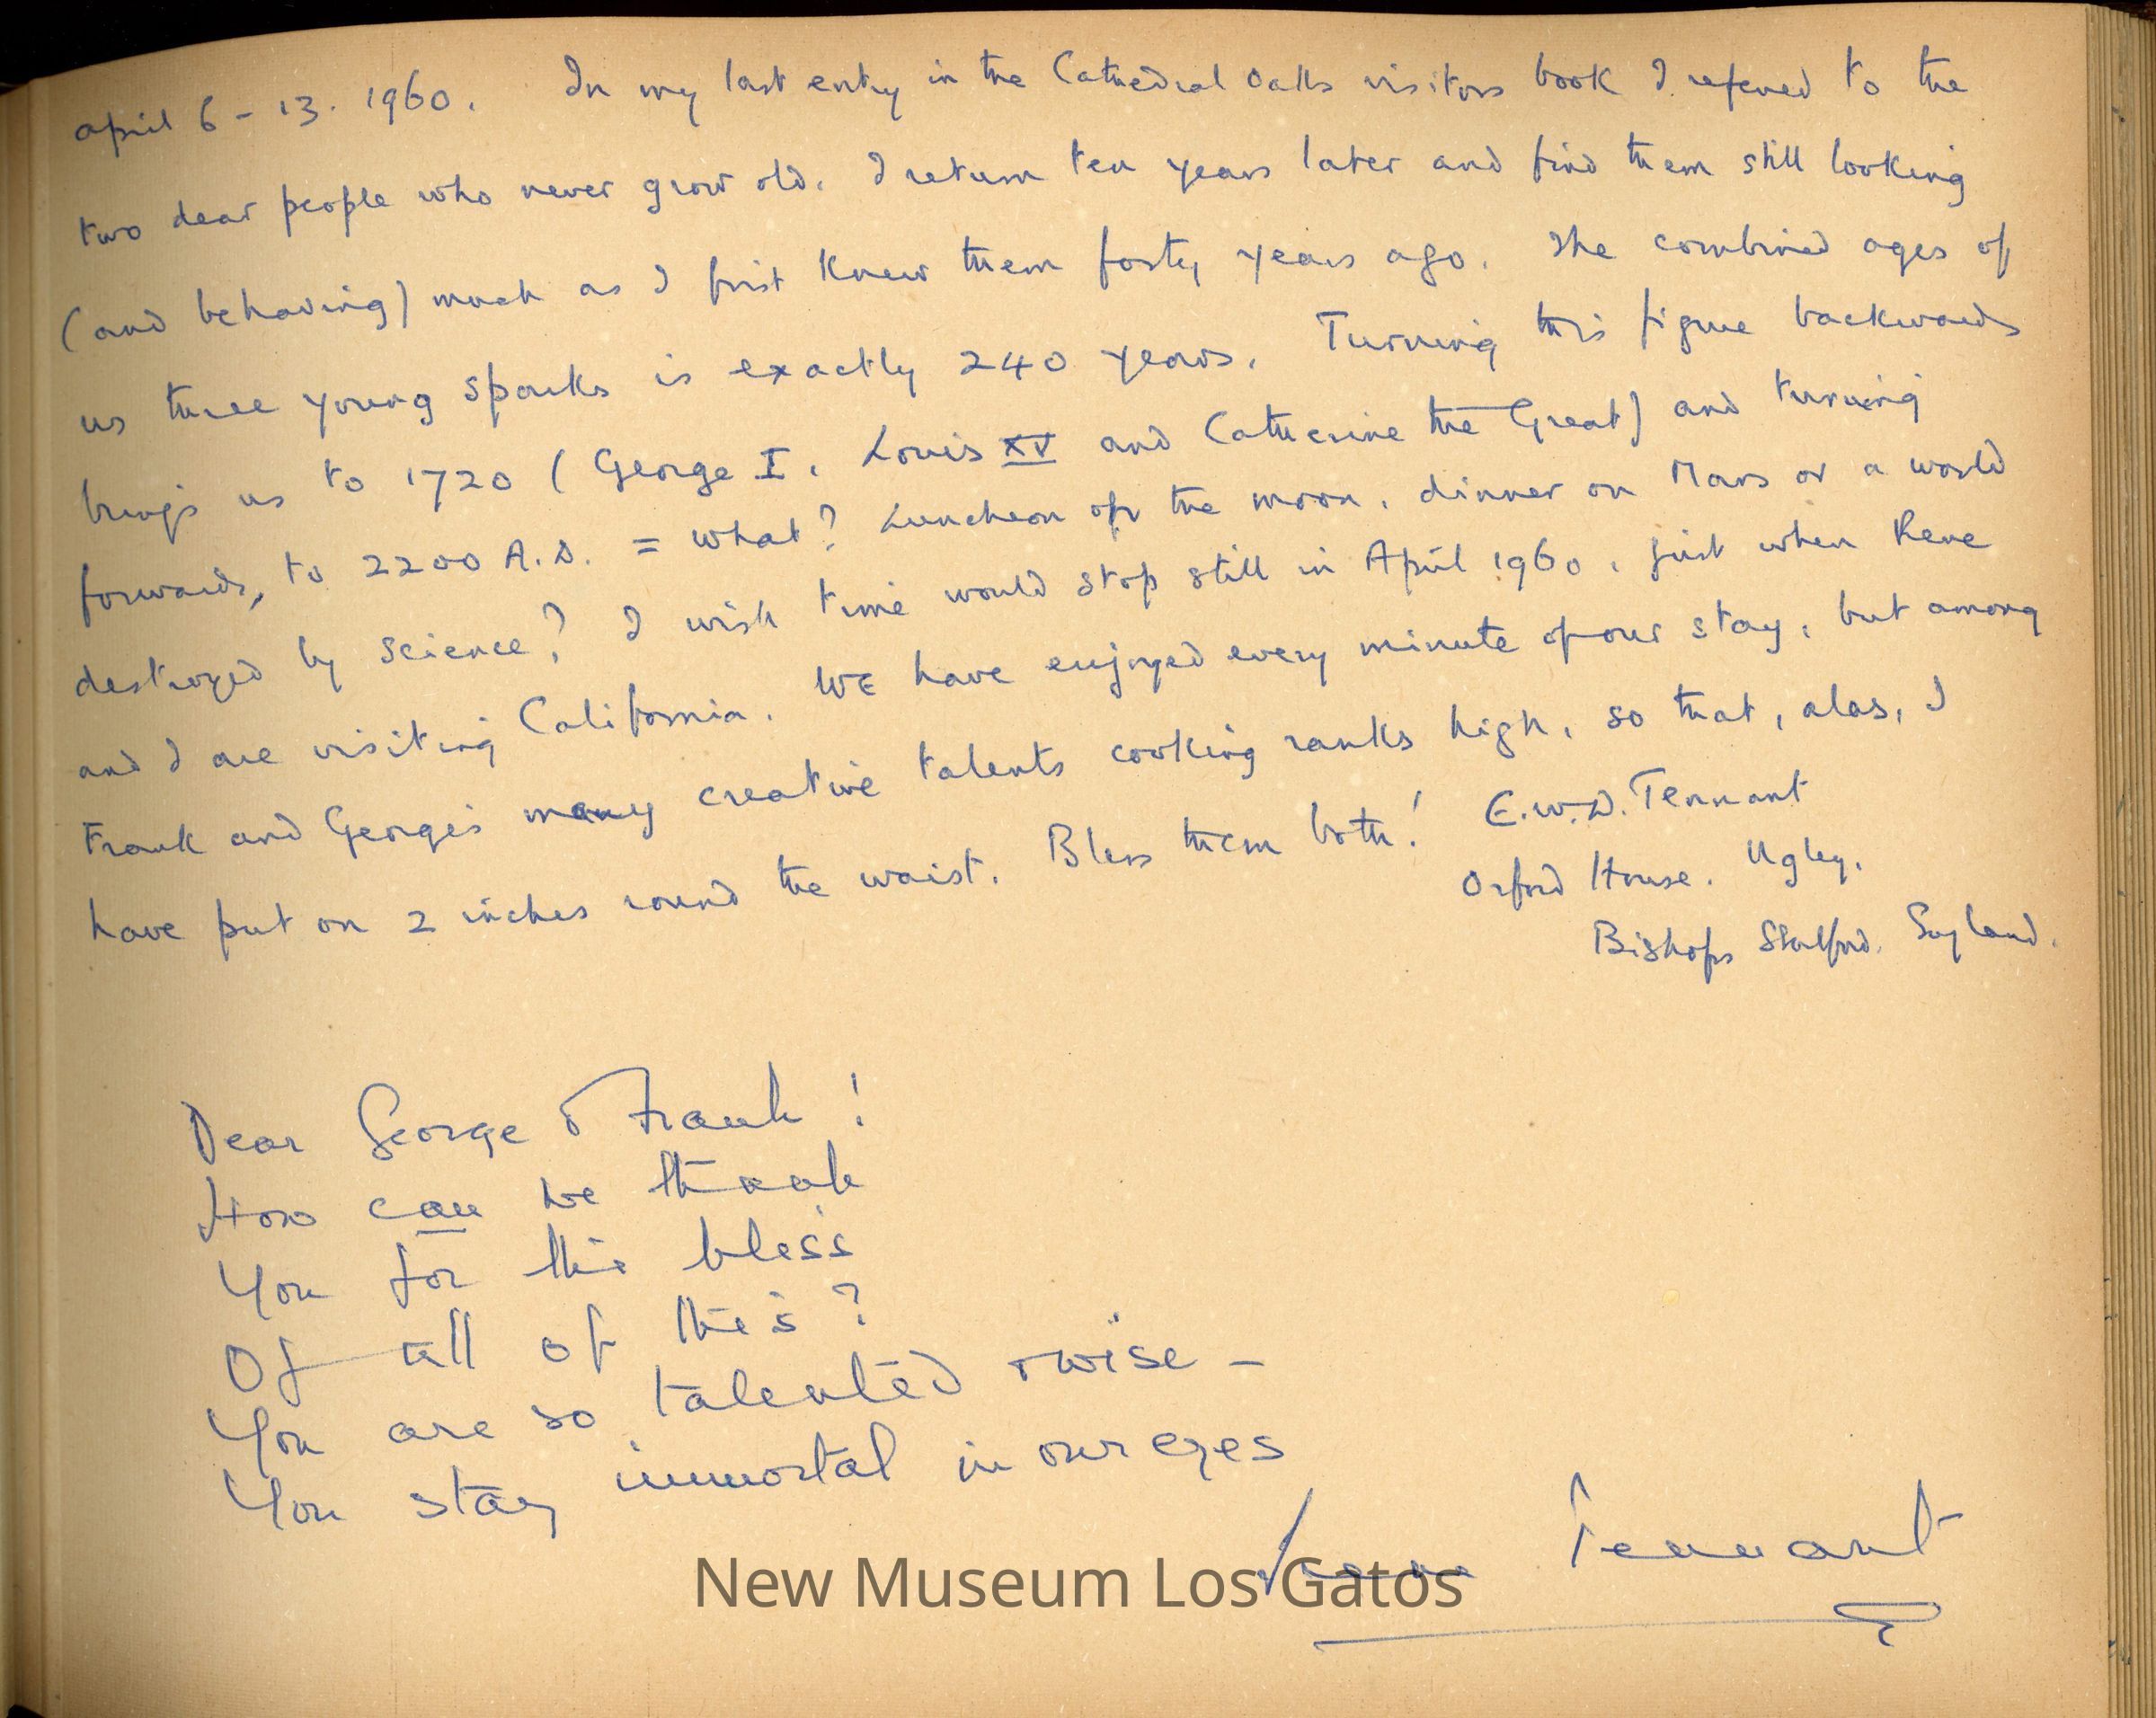 April 6 - 13. 1960. In my last entry in the Cathedral Oaks visitors book I refered to the
two dear people who never grow old. I return ten years later and find them still looking
(and behaving) much as I first knew them forty years ago. The combined ages of
us three young sparks is exactly 240 years. Turning this figure backwards
brings us to 1720 (George I, Louis XV and Catherine the Great) and turning
forwards, to 2200 A.D. = what? Luncheon on the moon, dinner on Mars or a world
destroyed by science? I wish time would stop still in April 1960, just when Rene
and I are visiting California. We have enjoyed every minute of our stay, but among
Frank and George's many creative talents cooking ranks high, so that, alas, I
have put on 2 inches round the waist. Bless them both! E.W.D. Tennant
Orford House. Ugley.
Bishops Stortford. England.
Dear George & Frank!
How can we thank
You for the bless
Of all of this?
You are so talented & wise -
You stay immortal in our eyes
Tennant
New Museum Los Gatos